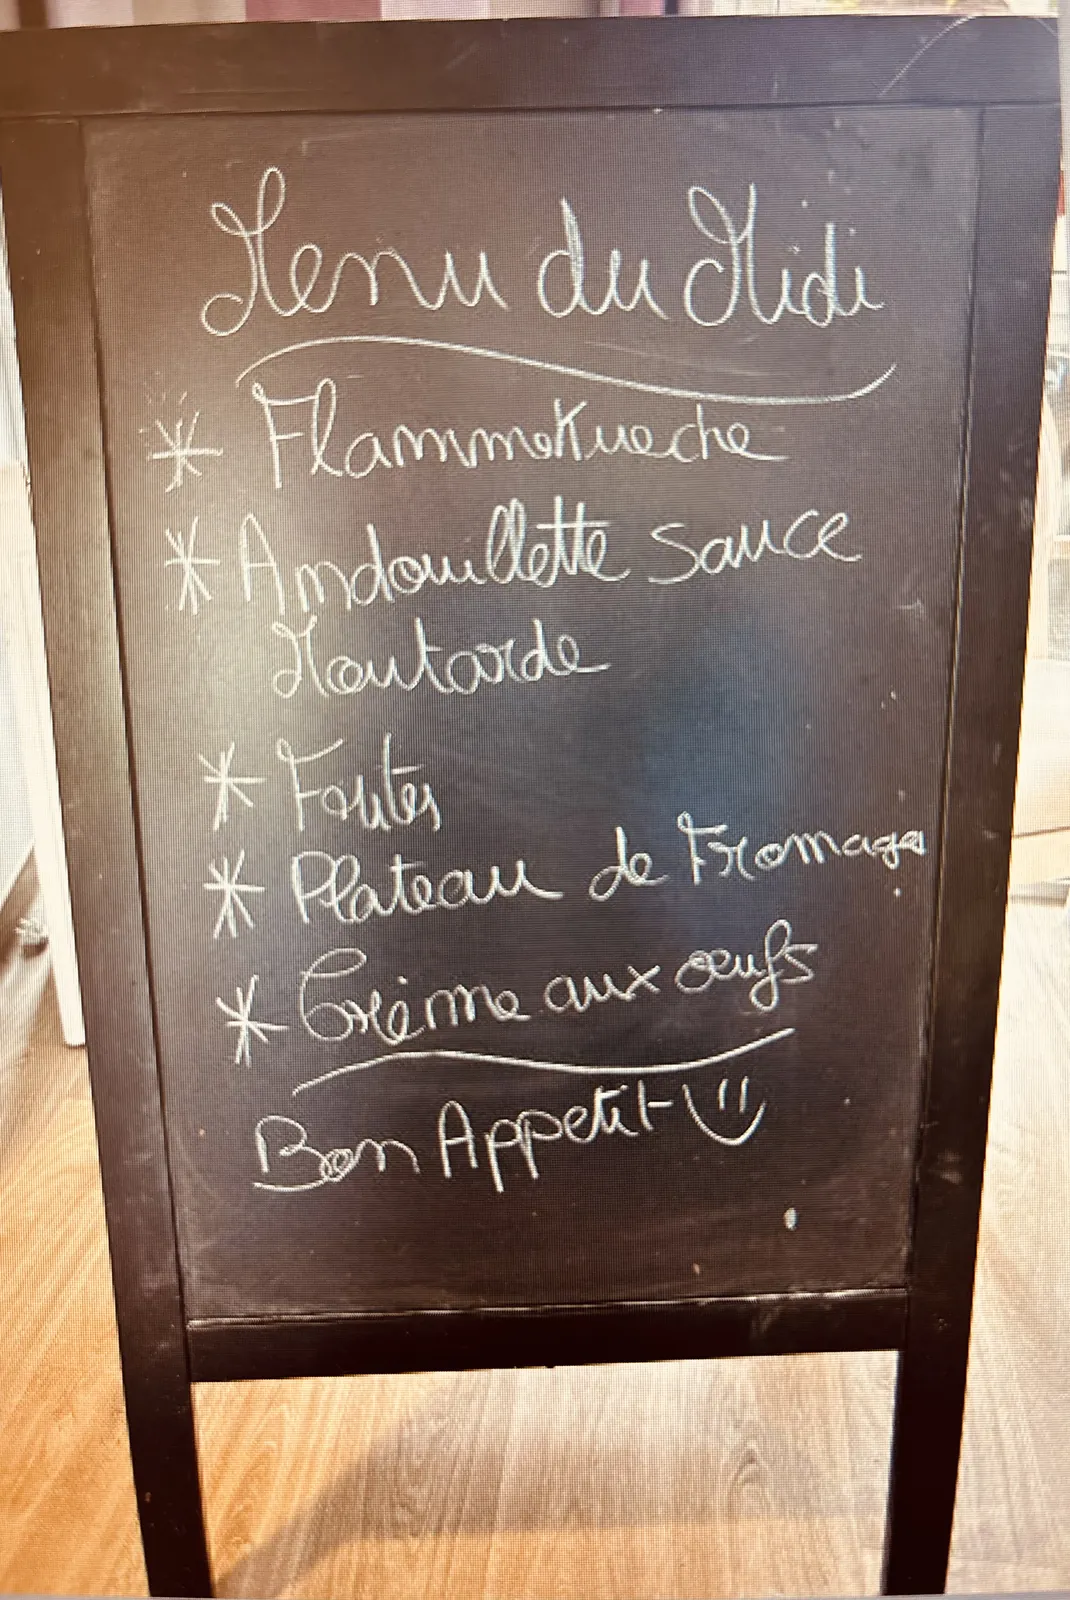 Menu du Midi
* Flammekueche
* Andouillette sauce
Moutarde
* Frites
* Plateau de Fromages
* Crème aux oeufs
Bon Appetit